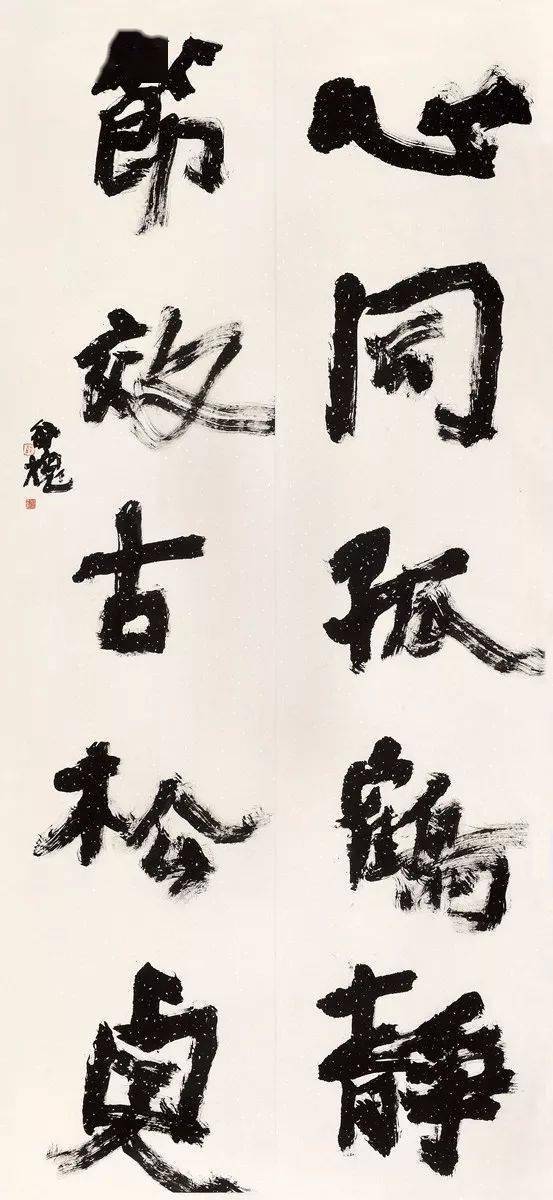 心同孤鶴靜
節效古松貞